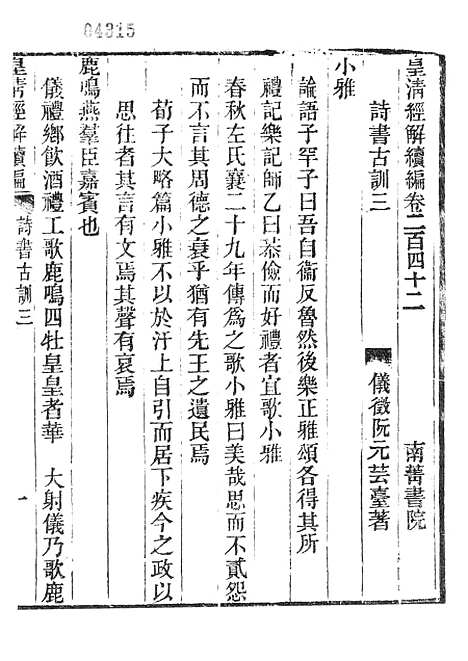 04315
皇清經解續編卷二百四十二 南菁書院
詩書古訓三 儀徵阮元芸臺著
小雅
論語子罕子曰吾自衞反魯然後樂正雅頌各得其所
禮記樂記師乙曰恭儉而好禮者宜歌小雅
春秋左氏襄二十九年傳爲之歌小雅曰美哉思而不貳怨
而不言其周德之衰乎猶有先王之遺民焉
荀子大略篇小雅不以於汙上自引而居下疾今之政以
思往者其言有文焉其聲有哀焉
鹿鳴燕羣臣嘉賓也
儀禮鄉飲酒禮工歌鹿鳴四牡皇皇者華 大射儀乃歌鹿
皇清經解續編 詩書古訓三 一